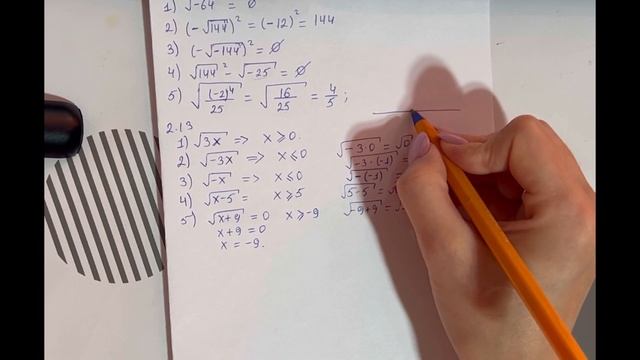 1) √-64 = ∅
2) (-√144)² = (-12)² = 144
3) (-√-144)² = ∅
4) √144² - √-25 = ∅
5) √(-2)⁴/25 = √16/25 = 4/5 ;
2.13
1) √3x => x ≥ 0.
2) √-3x => x ≤ 0
3) √-x => x ≤ 0
4) √x-5 = x ≥ 5
5) √x+9 = 0 x ≥ -9
x + 9 = 0
x = -9.
√-3·0 = √0
√-3·(-1) =
√-(-1) =
√5-5 =
√-9+9 =